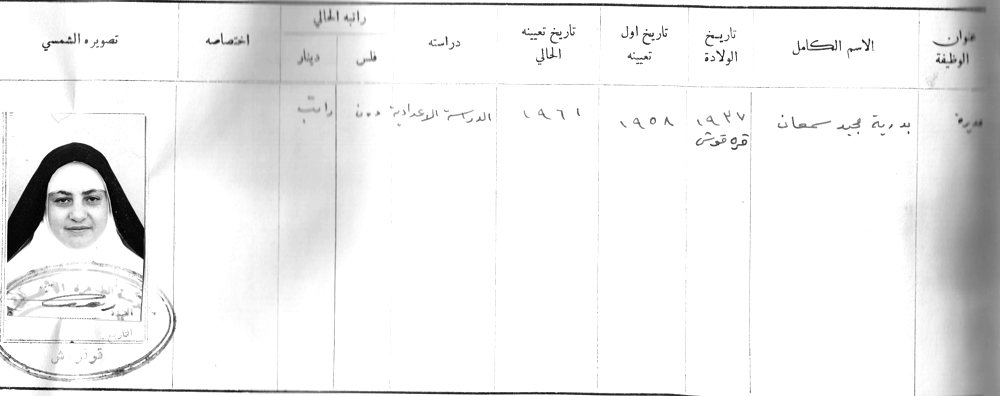 عنوان الوظيفة
الاسم الكامل
تاريخ الولادة
تاريخ اول تعيينه
تاريخ تعيينه الحالي
دراسته
راتبه الحالي
فلس
دينار
اختصاصه
تصويره الشمسي
مديرة
بدرية مجيد سمعان
١٩٣٧
قره قوش
١٩٥٨
١٩٦١
الدراسة الاعدادية
دون
راتب